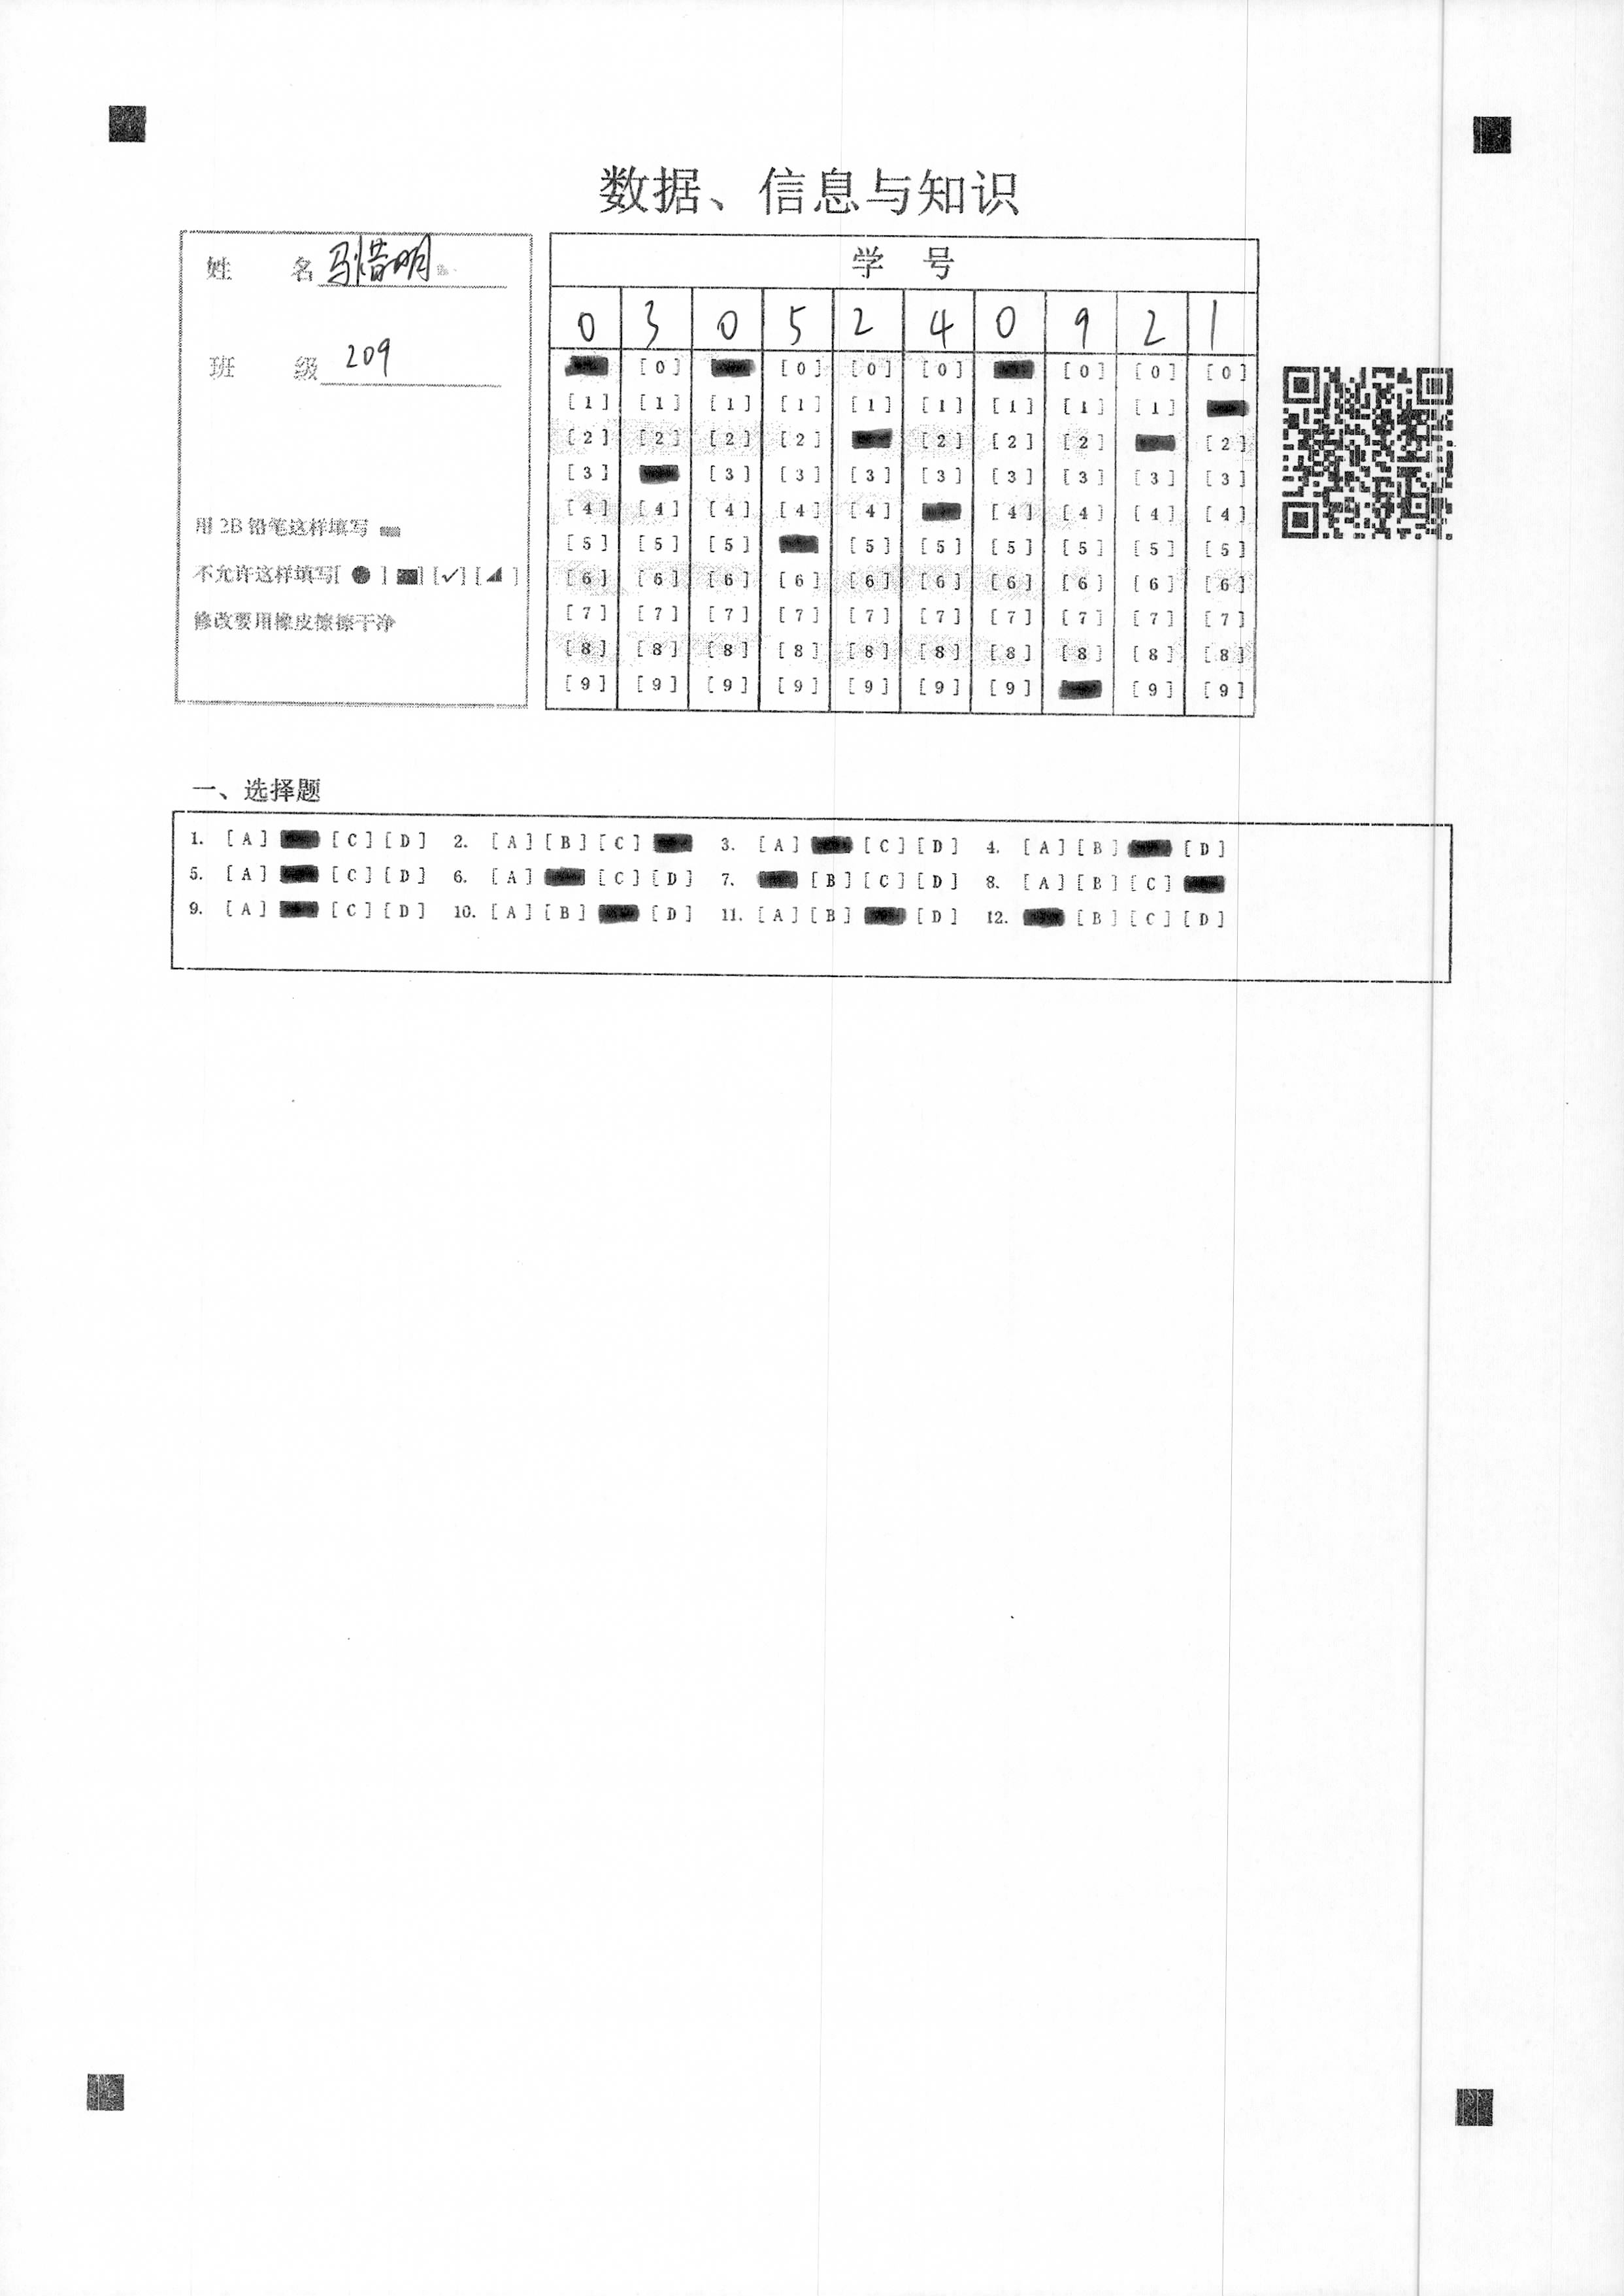 数据、信息与知识
姓 名 马惜明
班 级 209
用 2B 铅笔这样填写
不允许这样填写[ ● ] [■] [✓] [◢ ]
修改要用橡皮擦擦干净
学 号
0 3 0 5 2 4 0 9 2 1
[0] [0] [0] [0] [0] [0] [0]
[1] [1] [1] [1] [1] [1] [1] [1] [1]
[2] [2] [2] [2] [2] [2] [2] [2]
[3] [3] [3] [3] [3] [3] [3] [3] [3]
[4] [4] [4] [4] [4] [4] [4] [4] [4]
[5] [5] [5] [5] [5] [5] [5] [5] [5]
[6] [6] [6] [6] [6] [6] [6] [6] [6] [6]
[7] [7] [7] [7] [7] [7] [7] [7] [7] [7]
[8] [8] [8] [8] [8] [8] [8] [8] [8] [8]
[9] [9] [9] [9] [9] [9] [9] [9] [9]
一、选择题
1. [A] [C] [D] 2. [A] [B] [C] 3. [A] [C] [D] 4. [A] [B] [D]
5. [A] [C] [D] 6. [A] [C] [D] 7. [B] [C] [D] 8. [A] [B] [C]
9. [A] [C] [D] 10. [A] [B] [D] 11. [A] [B] [D] 12. [B] [C] [D]